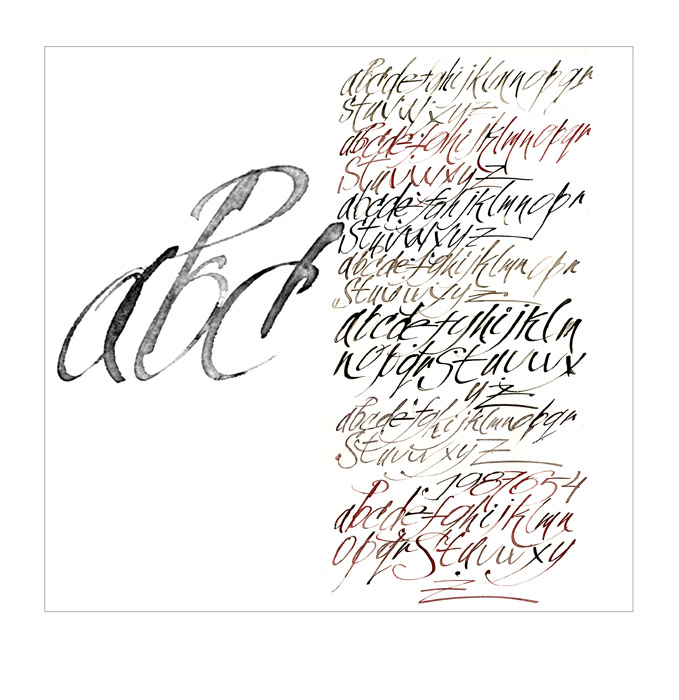 abc
abcdefghijklmnopqr
stuvwxyz
abcdefghijklmnopqr
stuvwxyz
abcdefghijklmnopqr
stuvwxyz
abcdefghijklmnopqr
stuvwxyz
abcdefghijklm
nopqrstuvwx
yz
abcdefghijklmnopqr
stuvwxyz
1987654
abcdefghijklmn
opqrstuvwxy
z